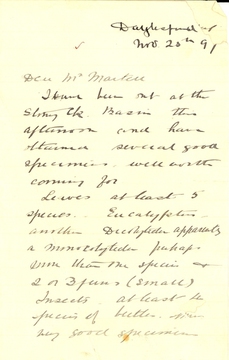 Daylesford
Nov 20th 91
Dear Mr Martell
I have been out at the
Stony Ck. Basin this
afternoon and have
obtained several good
specimens well worth
coming for
Leaves at least 5
species. Eucalyptus
another Dicotyledon apparently
a monocotyledon perhaps
more than one species &
2 or 3 ferns (small)
Insects. at least
species of beetles.
very good specimen